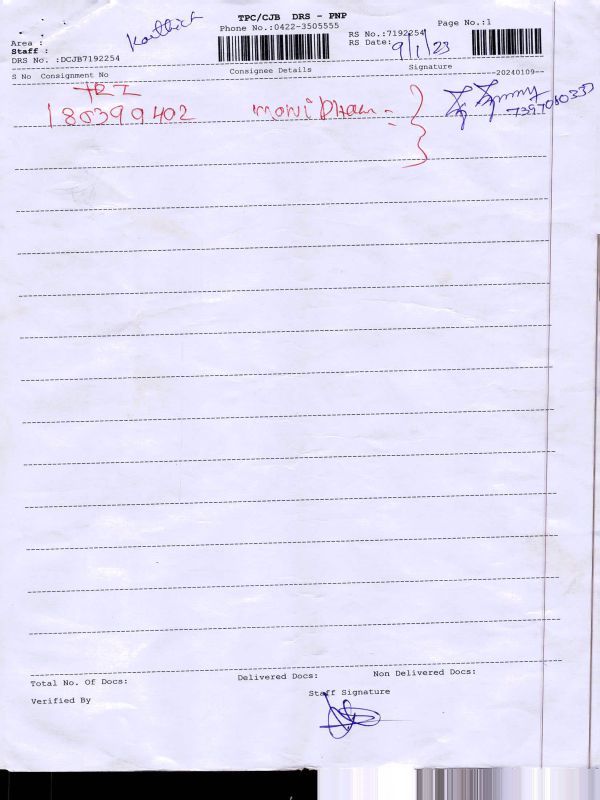 TPC/CJB DRS - PNP
Phone No.:0422-3505555
Page No.:1
Karthick
RS No.:7192254
RS Date: 9/1/23
Area :
Staff :
DRS No. :DCJB7192254
S No Consignment No
Consignee Details
Signature
--20240109--
180399402
Total No. Of Docs:
Delivered Docs:
Non Delivered Docs:
Verified By
Staff Signature